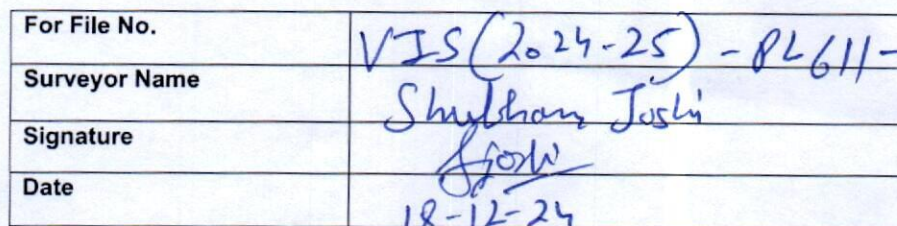 For File No. VIS(2024-25) - PL611-
Surveyor Name Shubham Joshi
Signature SJoshi
Date 18-12-24